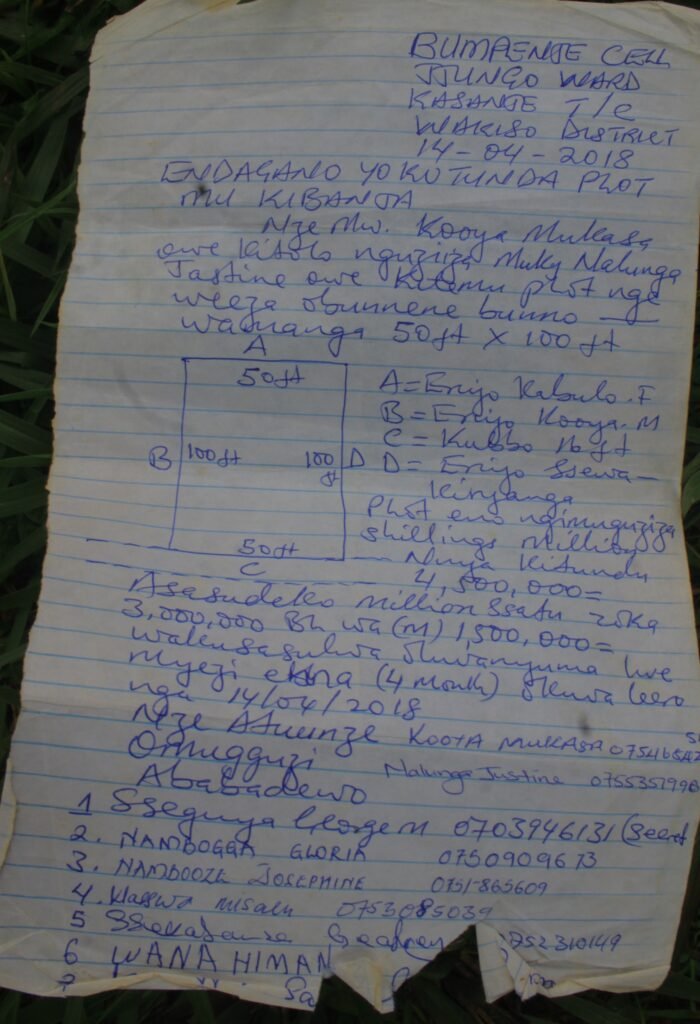 BUMPENJE CELL
JJUNGO WARD
KASANJE T/C
WAKISO DISTRICT
14-04-2018
ENDAGANO YOKUTUNDA PLOT
MU KIBANJA
Nze Mw. Kooya Mukasa
owe Kitolo nguziza Muky Nalunga
Jastine owe Kitemu plot nga
weeza obunnene bunno
wammanga 50ft X 100ft
A
50ft
A = Eriyo Kabulo .F
B = Eriyo Kooya .M
C = Kubbo 16 ft
B 100ft 100 ft D
D = Eriyo Ssewa-
Kiryanga
Plot eno ngimuguziza
shillings Million
50ft
Nnya Kitundu
C
4,500,000=
Asasudeko million Ssatu zoka
3,000,000 Bh wa (m) 1,500,000=
wakusasulwa oluvanyuma lwe
myezi ena (4 month) okuva leero
nga 14/04/2018
Nze Atunze KOOYA MUKASA
Omugguzi Nalunga Justine
Ababadewo
1 Ssegujja George M 0703946131 (Secret
2. NAMBOGGA GLORIA 0750909673
3. NAMBOOZE JOSEPHINE 0751-865609
4. 0753085039
5 752310149
6 WANA HIMAN
7